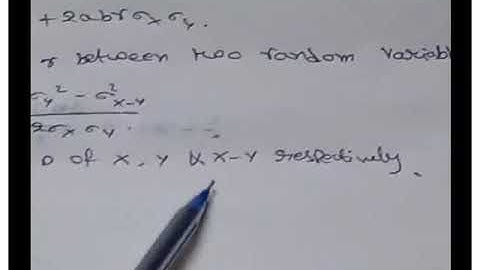 + 2abrσxσy.
r between two random variabl
σy² - σ²x-y
2σxσy.
D of X, Y & X-Y respectively.